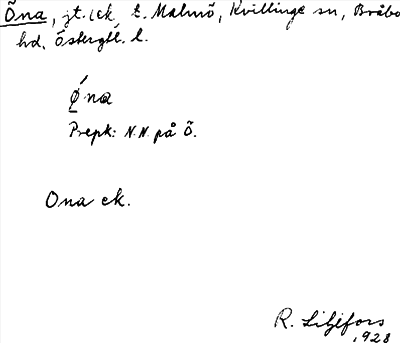 Öna, jt. (ek, t. Malmö, Kvillinge sn, Bråbo
hd, Östergtl. l.
Ǿna
Prepk: N.N. på Ö.
Ona ek.
R. Liljefors
1928